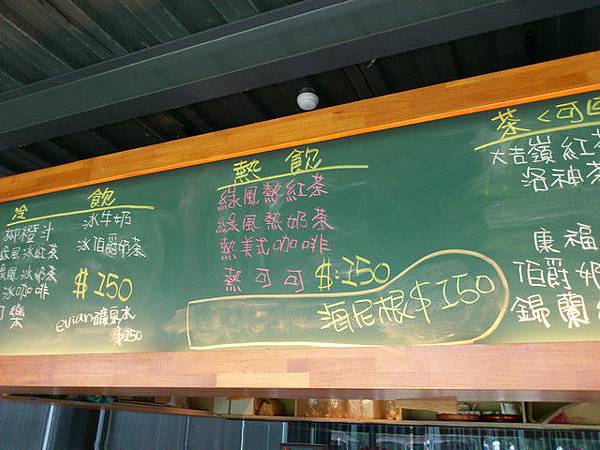 冷飲
柳橙汁
綠風冰紅茶
綠風冰奶茶
冰咖啡
可樂
冰牛奶
冰伯爵奶茶
$150
evian礦泉水
$150
熱飲
綠風熱紅茶
綠風熱奶茶
熱美式咖啡
熱可可 $150
海尼根$150
茶<可回
大吉嶺紅茶
洛神茶
康福
伯爵奶
錫蘭